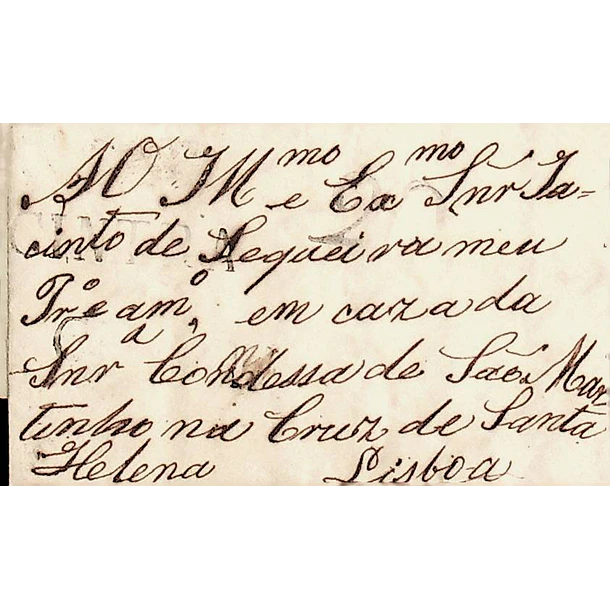 AO Illmo e Exmo Snr Ja=
cinto de Sequeira meu
Tro e amo, em caza da
Snra Condessa de São Mar
tinho na Cruz de Santa
Helena Lisboa